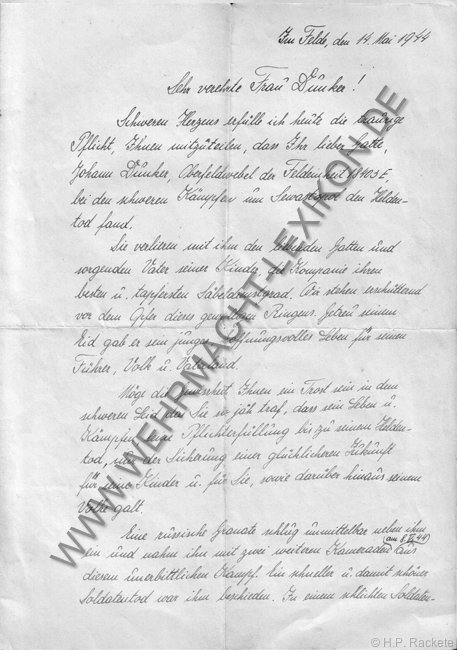 Im Felde, den 14. Mai 1944
Sehr verehrte Frau Dünker!
Schweren Herzens erfülle ich heute die traurige
Pflicht, Ihnen mitzuteilen, dass Ihr lieber Gatte,
Johann Dünker, Oberfeldwebel der Feldeinheit E,
bei den schweren Kämpfen um Sewastopol den Helden-
tod fand.
Sie verlieren mit ihm den liebenden Gatten und
sorgenden Vater seiner Kinder, die Kompanie ihren
besten u. tapfersten. Wir stehen erschütternd
vor dem Opfer dieses gewaltigen Ringens. Getreu seinem
Eid gab er sein junges, hoffnungsvolles Leben für seinen
Führer, Volk u. Vaterland.
Möge die Gewissheit Ihnen ein Trost sein in dem
schweren Leid das Sie so jäh traf, dass sein Leben u.
Kämpfen seine Pflichterfüllung bis zu seinem Helden-
tod, nur der Sicherung einer glücklicheren Zukunft
für seine Kinder u. für Sie, sowie darüber hinaus seinem
Volke galt.
Eine russische Granate schlug unmittelbar neben ihm
ein und nahm ihn mit zwei weiteren Kameraden (am 44) aus
diesem unerbittlichen Kampf. Ein schneller u. damit schöner
Soldatentod war ihm beschieden. In einem schlichten Soldaten-
WWW.WEHRMACHT-LEXIKON.DE
© H.P. Rackete